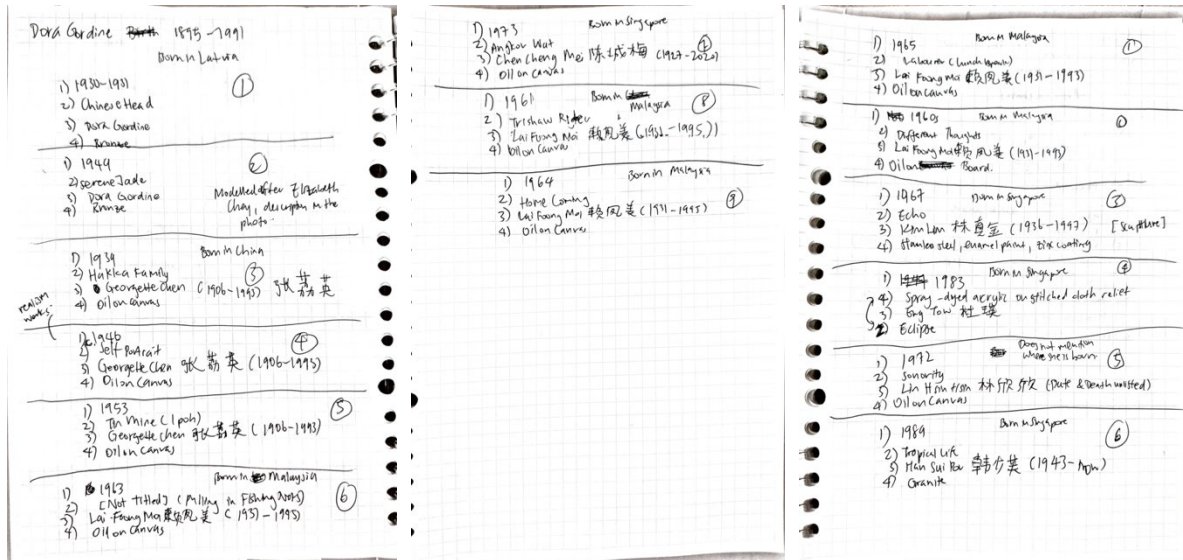 Dora Gordine 1895-1991
Born in Latvia
1) 1930-1931 ①
2) Chinese Head
3) Dora Gordine
4) Bronze
1) 1949 ②
2) Serene Jade
3) Dora Gordine
4) Bronze
Modelled after Elizabeth
Choy, description in the
photo.
Born in China
1) 1939 ③
2) Hakka Family
3) Georgette Chen (1906-1993) 张荔英
4) Oil on canvas
realism
works.
1) c.1946 ④
2) Self Portrait
3) Georgette Chen 张荔英 (1906-1993)
4) Oil on Canvas
1) 1953 ⑤
2) Tin Mine (Ipoh)
3) Georgette Chen 张荔英 (1906-1993)
4) Oil on Canvas
Born in Malaysia
1) 1963 ⑥
2) [Not Titled] (Pulling in Fishing Nets)
3) Lai Foong Moi 赖凤美 (1931-1995)
4) Oil on Canvas
Born in Singapore
1) 1973 ⑦
2) Angkor Wat
3) Chen Cheng Mei 陈城梅 (1927-2020)
4) Oil on Canvas
1) 1961 Born in Malaysia ⑧
2) Trishaw Rider
3) Lai Foong Moi 赖凤美
4) Oil on Canvas
1) 1964 Born in Malaysia
2) Home Coming ⑨
3) Lai Foong Moi 赖凤美 (1931-1995)
4) Oil on Canvas
1) 1965 Born in Malaysia ①
2) Labourer (Lunch Break)
3) Lai Foong Moi 赖凤美 (1931-1995)
4) Oil on canvas
1) 1960s Born in Malaysia ②
2) Different Thoughts
3) Lai Foong Moi 赖凤美 (1931-1995)
4) Oil on Board.
1) 1967 Born in Singapore ③
2) Echo
3) Kim Lim 林真金 (1936-1997) [Sculpture]
4) Stainless steel, enamel paint, coating
1) 1983 Born in Singapore ④
4) Spray-dyed acrylic on stitched cloth relief
3) Eng Tow 杜瑛
2) Eclipse
1) 1972 Does not mention ⑤
where she is born
2) Sonority
3) Lin Hsin Hsin 林欣欣 (Date & Death unlisted)
4) Oil on Canvas
1) 1989 Born in Singapore ⑥
2) Tropical Life
3) Han Sai Por 韩少芙 (1943-Now)
4) Granite